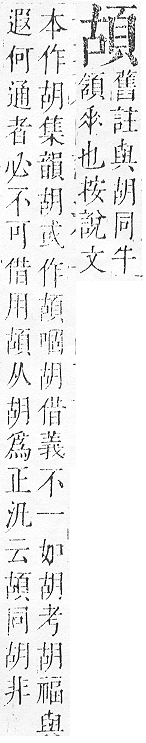 𩑶
舊註與胡同牛
領𠂹也按說文
本作胡集韻胡或作𩑶胡借義不一如胡考胡福與
遐何通者必不可借用𩑶从胡爲正汎云𩑶同胡非